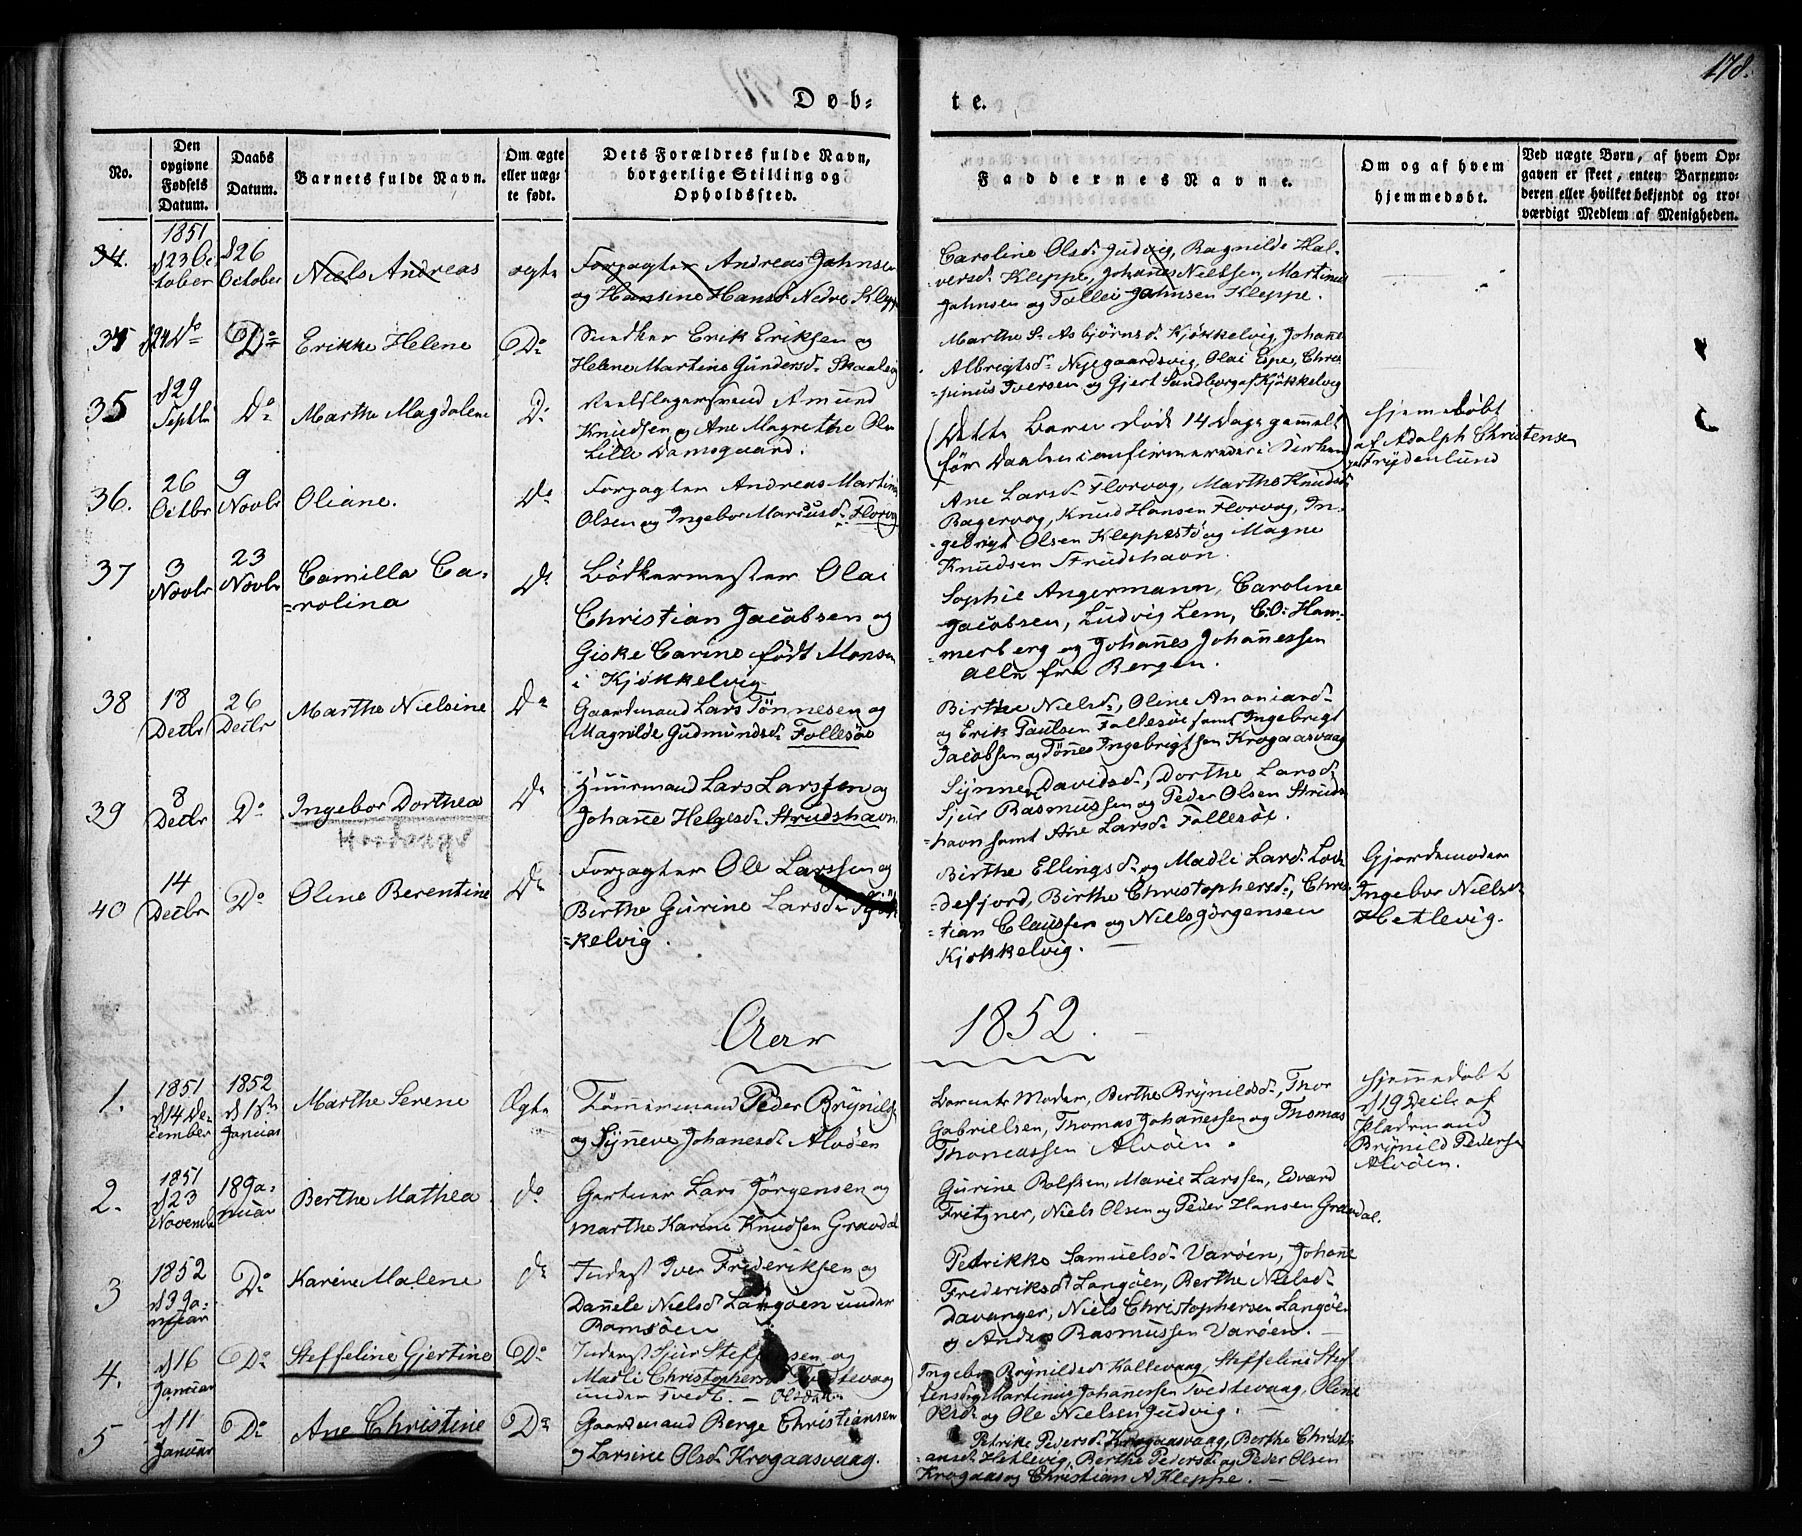 178.
Døb-
te.
No.
Den
opgivne
Fødsels
Datum.
Daabs
Datum.
Barnets fulde Navn.
Om ægte
eller uæg-
te født.
Dets Forældres fulde Navn,
borgerlige Stilling og
Opholdssted.
Faddernes Navne.
Om og af hvem
hjemmedøbt.
Ved uægte Børn, af hvem Op-
gaven er skeet, enten Barnemo-
deren eller hvilket bekjendt og tro-
værdigt Medlem af Menigheden.
34.
1851
d 23 Oc
tober
d 26
October
Niels Andreas
ægte
Forpagter Andreas Jahnsen
og Hansine Hansd. Nedre Klepp
Caroline Olsd. Judvig, Ragnilde Hal-
versd. Kleppe, Johanes Nielsen, Martines
Jahnsen og Tollei Jahnsen Kleppe.
34
d 24 Do
Do
Erikke Helene
Do
Snedker Erik Eriksen og
Helene Martine Gundersd. Skaalvig
Marthe S. Asbjørnsd. Kjøkkelvig, Johane
Albrigtsd. Nygaardsvig, Olai Espe, Chri
spinus Iversen og Gjert Sundborg af Kjøkkelvig
35
d 29
Septbr
Do
Marthe Magdalene
Do
Reslagersvend Amund
Knudsen og Ane Magrethe Olsn
Lille Damsgaard.
(Dette Barn døde 14 Dage gammelt
før Daaben confirmeredes i Kirken)
Hjemedøbt
af Adolph Christensen
paa Frydenlund
36.
26
Octbr
9
Novbr
Oliane.
Do
Forpagter Andreas Martin
Olsen og Ingebor Marcusd. Florvg
Ane Larsd. Florvog, Marthe Knudsd.
Bagervog, Knud Hansen Florvog, In-
gebrigt Olsen Kleppestø og Magne
Knudsen Strudshavn.
37
3
Novbr
23
Novbr
Camilla Ca-
=rolina
Do
Bødkermester Olai
Christian Jacobsen og
Giske Carine født Monsen
i Kjøkkelvig
Sophie Angermann, Caroline
Jacobsen, Ludvig Lem, C. O. Ham-
=merberg og Johannes Johannessen
alle fra Bergen.
38
18
Decbr
26
Decbr
Marthe Nielsine
Do
Gaardmand Lars Tønnesen og
Magnilde Gudmundsd. Follesøe
Birthe Nielsd., Oline Ananiasd.
og Erik Paulsen Follesøe samt Ingebrigt
Jacobsen og Tønes Ingebrigtsen Krogaasvaag
39
8
Decbr
Do
Ingebor Dorthea
Do
Huusmand Lars Larssen og
Johanne Helgesd. Strudshavn
Synneve Davidsd., Dorthe Larsd.
Sjur Rasmussen og Peder Olsen Struds
=havn samt Ane Larsd. Follesøe.
40
14
Decbr
Do
Oline Berentine
Do
Forpagter Ole Larssen og
Birthe Gurine Larsd. Kjøk
=kelvig.
Birthe Ellingsd. og Madli Larsd. Lod-
=defjord, Birthe Christophersd., Chris
=tian Claussen og Niels Jørgensen
Kjøkkelvig.
Gjordemoder
Ingebor Nielsd.
Hetlevig.
Aar
1852.
1.
1851
d 14 De-
cember
1852
d 1ste
Januar
Marthe Serene
Ægte
Tømmermand Peder Brynilds
og Synneve Johanesd. Alvøen
Barnets Moder, Berthe Brynildsd., Thor
Gabrielsen, Thomas Johannessen og Thomas
Thomassen Alvøen.
Hjemmedøbt
d 19 Decbr af
Pladsmand
Brynild Pedersen
Alvøen.
2.
1851
d 23
Novembr
18 Ja-
nuar
Berthe Mathea
do
Gartner Lars Jørgensen og
Marthe Karine Knudsen Gravdal
Gurine Rolfsen, Marie Larssen, Edvard
Fritzner, Niels Olsen og Peder Hansen Gravdal.
3
1852
d 3 Ja-
nuar
Do
Karine Malene
do
Inderst Iver Frederiksen og
Danele Nielsd. Langøen under
Ramsøen
Petrikke Samuelsd. Varøen, Johanne
Frederiksd. Langøen, Berthe Nielsd.
Davanger, Niels Christophersen Langøen
og Anders Rasmussen Varøen.
4.
d 16
Januar
Do
Steffeline Gjertine
Do
Inderst Sjur Steffensen og
Madli Christophersd. Tvedtevaag
under Tvedt.
Ingebor Brynildsd. Hallevaag, Steffeline Stef-
fensd. og Martinius Johannessen Tvedtevaag, Oline
Olsd. og Ole Nielsen Judvig.
5
d 11
Januar
Do
Ane Christine
Do
Gaardmand Berge Christiansen
og Larsine Olsd. Krogaasvaag.
Petrike Pedersd. Krogaasvaag, Berthe Christi-
=ansd. Hetlevig, Berthe Pedersd. og Peder Olsen
Krogaasvog Christian A Kleppe.